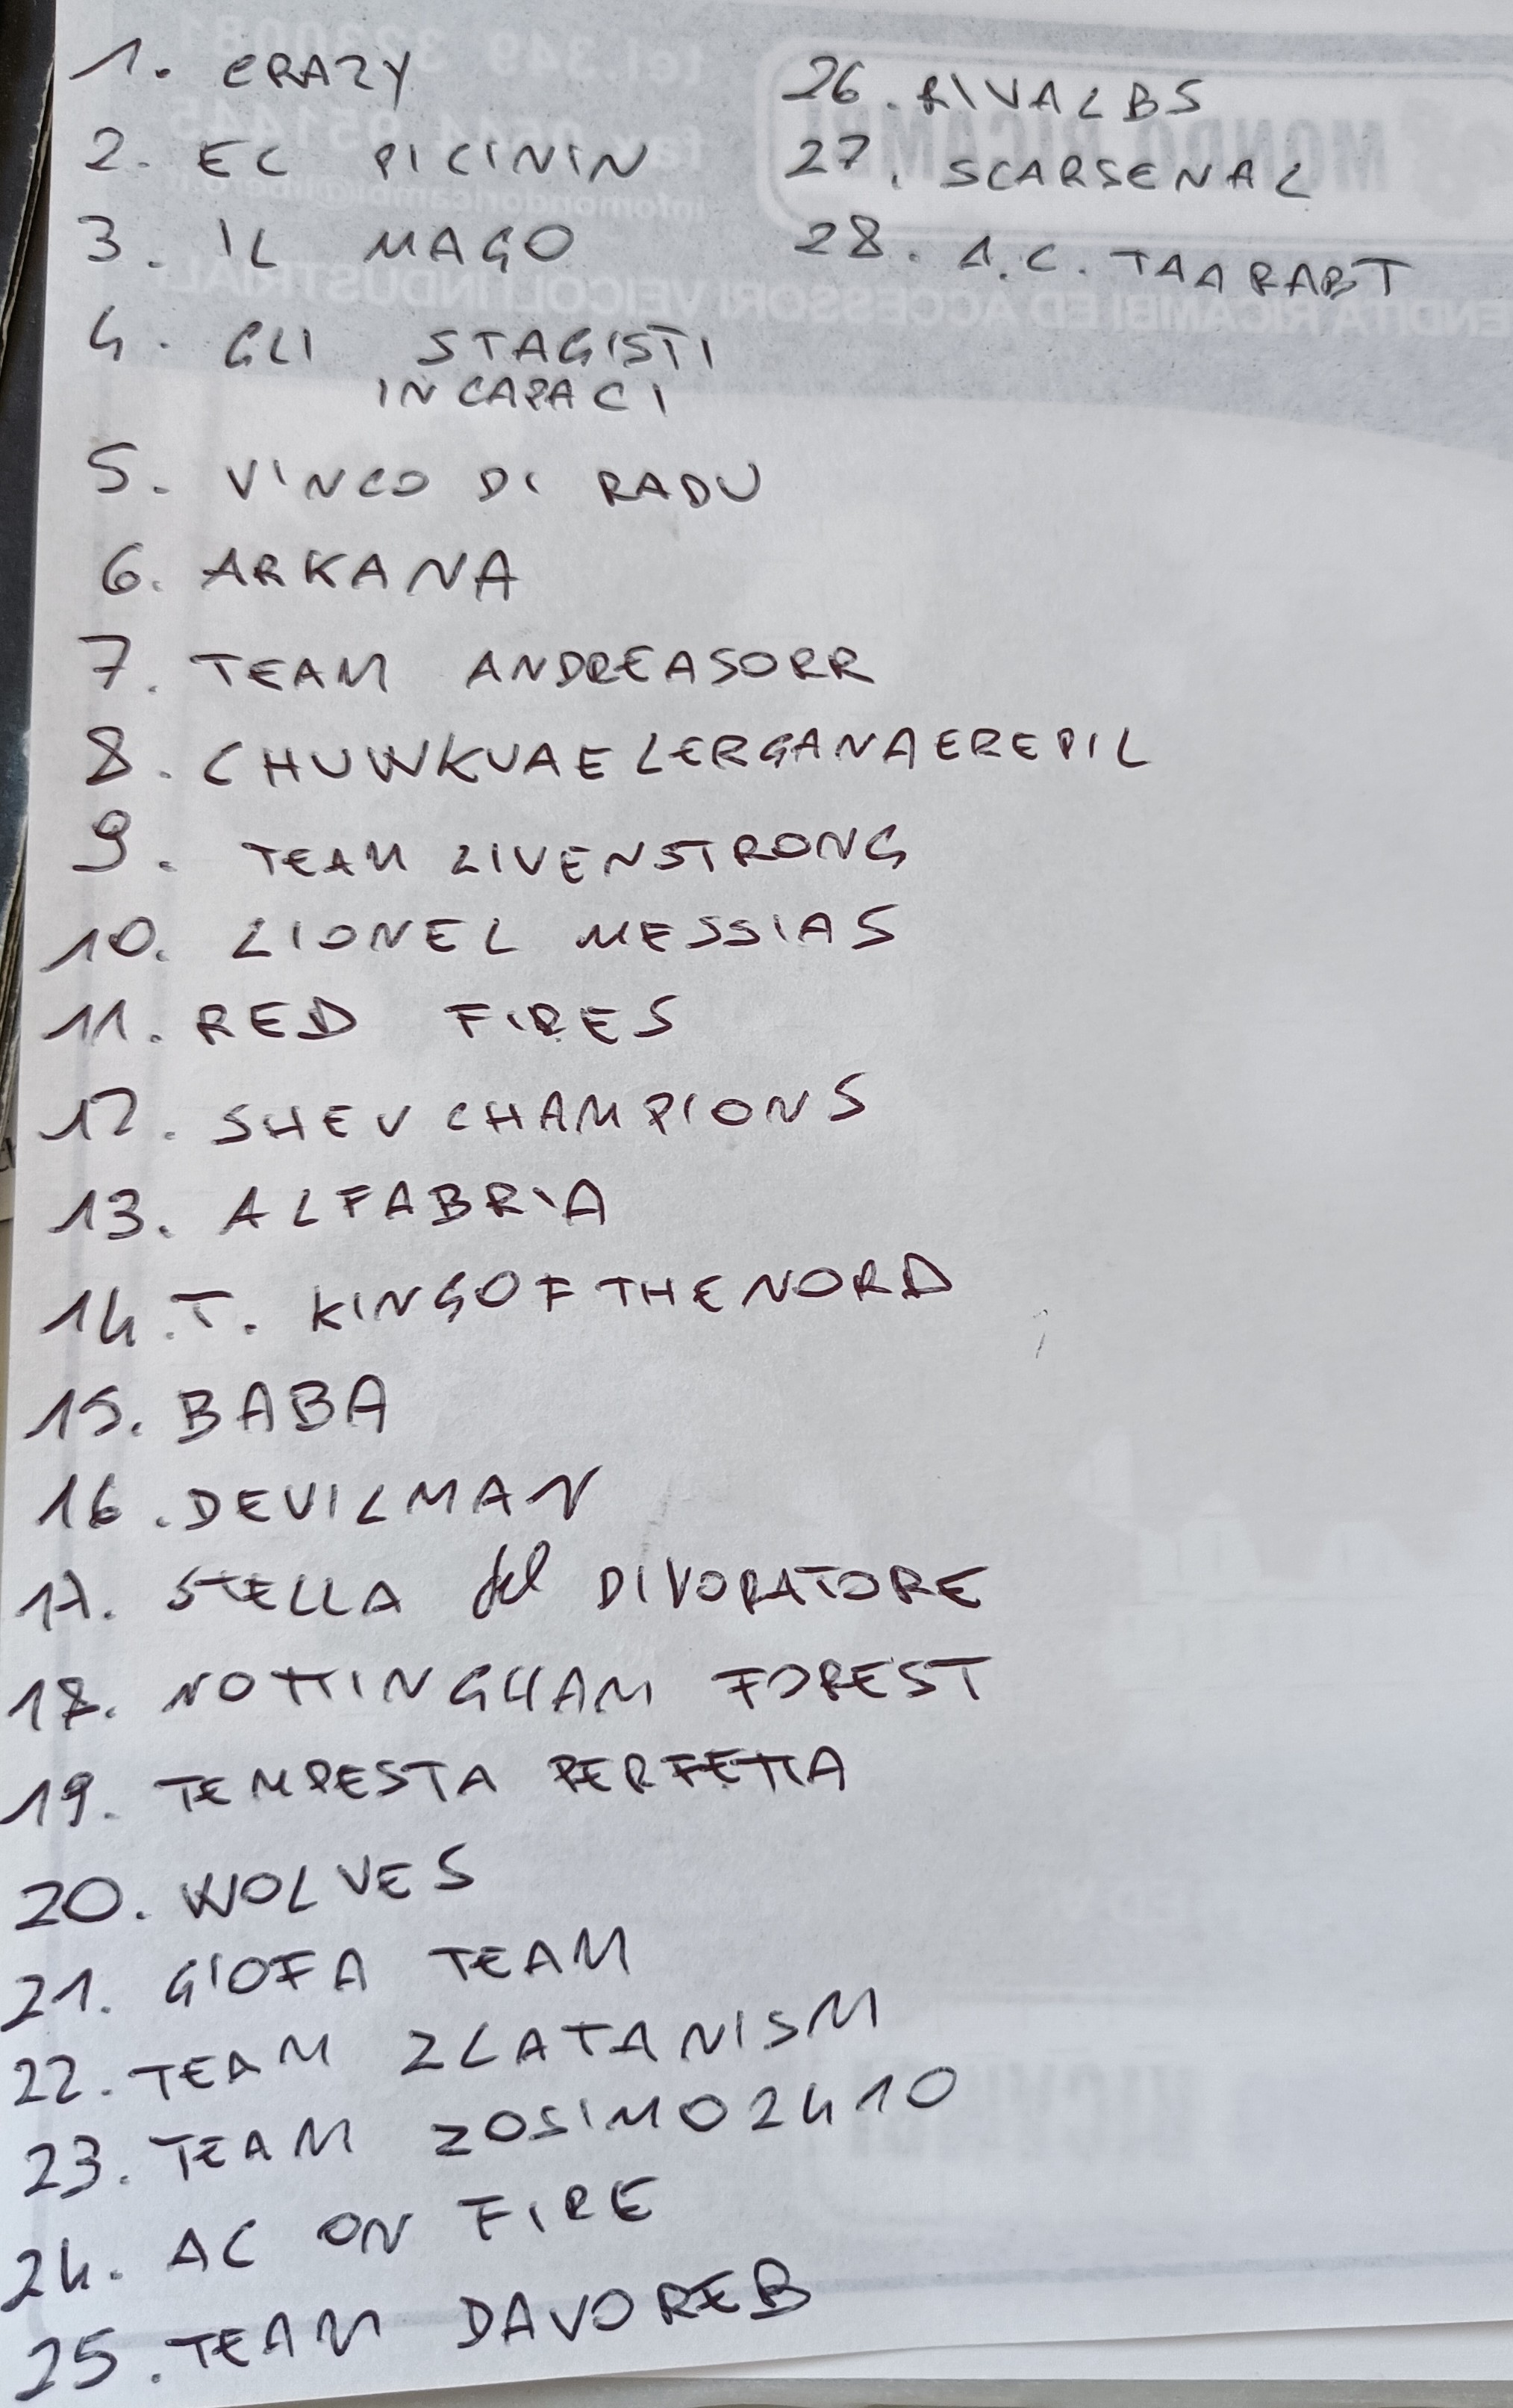 1. CRAZY
2. EL PICININ
3. IL MAGO
4. GLI STAGISTI
INCAPACI
5. VINCO DI RADU
6. ARKANA
7. TEAM ANDREASORR
8. CHUWKUAELERGANAEREPIL
9. TEAM LIVENSTRONG
10. LIONEL MESSIAS
11. RED FIRES
12. SHEVCHAMPIONS
13. ALFABRIA
14. T. KINGOFTHENORD
15. BABA
16. DEVILMAN
17. STELLA del DIVORATORE
18. NOTTINGHAM FOREST
19. TEMPESTA PERFETTA
20. WOLVES
21. GIOFA TEAM
22. TEAM ZLATANISM
23. TEAM ZOSIMO2410
24. AC ON FIRE
25. TEAM DAVOREB
26. RIVALBS
27. SCARSENAL
28. A.C. TAARABT